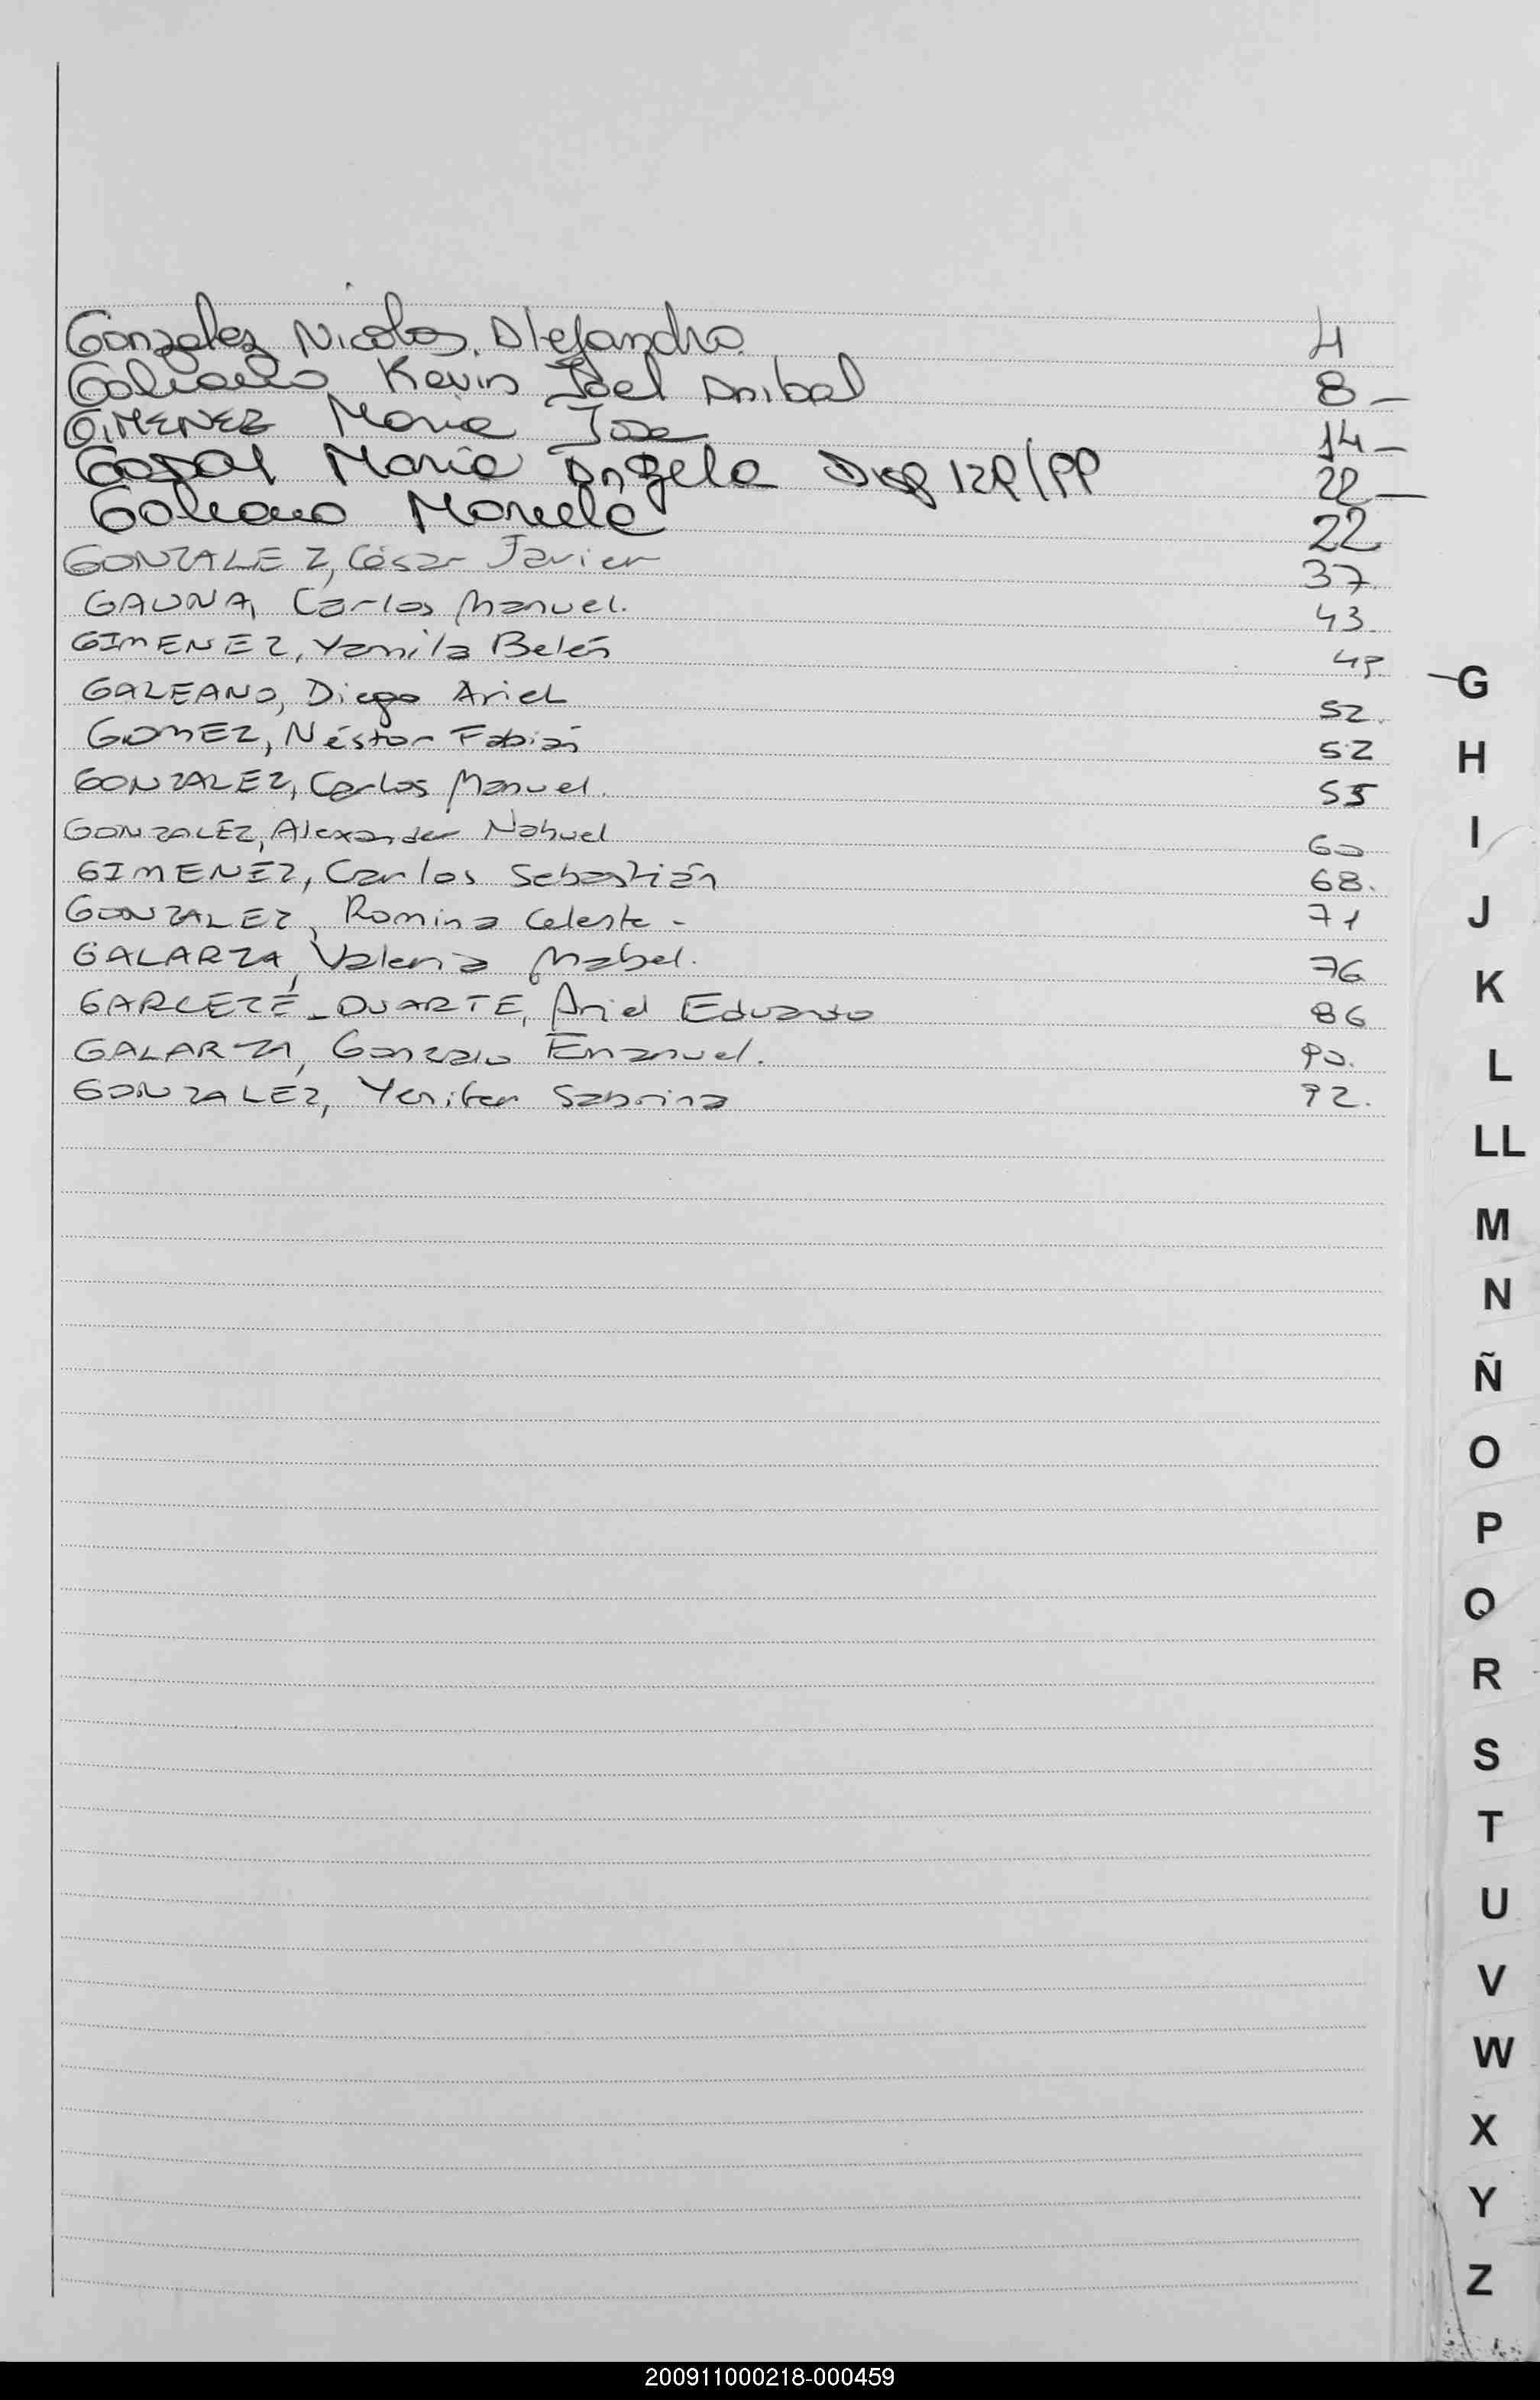 Gonzalez Nicolas Alejandro 4
Galeano Kevin Joel Anibal 8 -
GIMENEZ Maria Jose 14 -
Maria Angela Disp 129/99 22 -
Galeano Marcela 22
GONZALEZ, César Javier 37
GAUNA, Carlos Manuel. 43
GIMENEZ, Yamila Belén 49
GALEANO, Diego Ariel 52.
GOMEZ, Néstor Fabián 52
GONZALEZ, Carlos Manuel. 55
GONZALEZ, Alexander Nahuel 60
GIMENEZ, Carlos Sebastián 68.
GONZALEZ, Romina Celeste - 71
GALARZA, Valeria Mabel. 76
GARCETE - DUARTE, Ariel Eduardo 86
GALARZA, Gonzalo Emanuel. 90.
GONZALEZ, Yenifer Sabrina 92.
G
H
I
J
K
L
LL
M
N
Ñ
O
P
Q
R
S
T
U
V
W
X
Y
Z
200911000218-000459